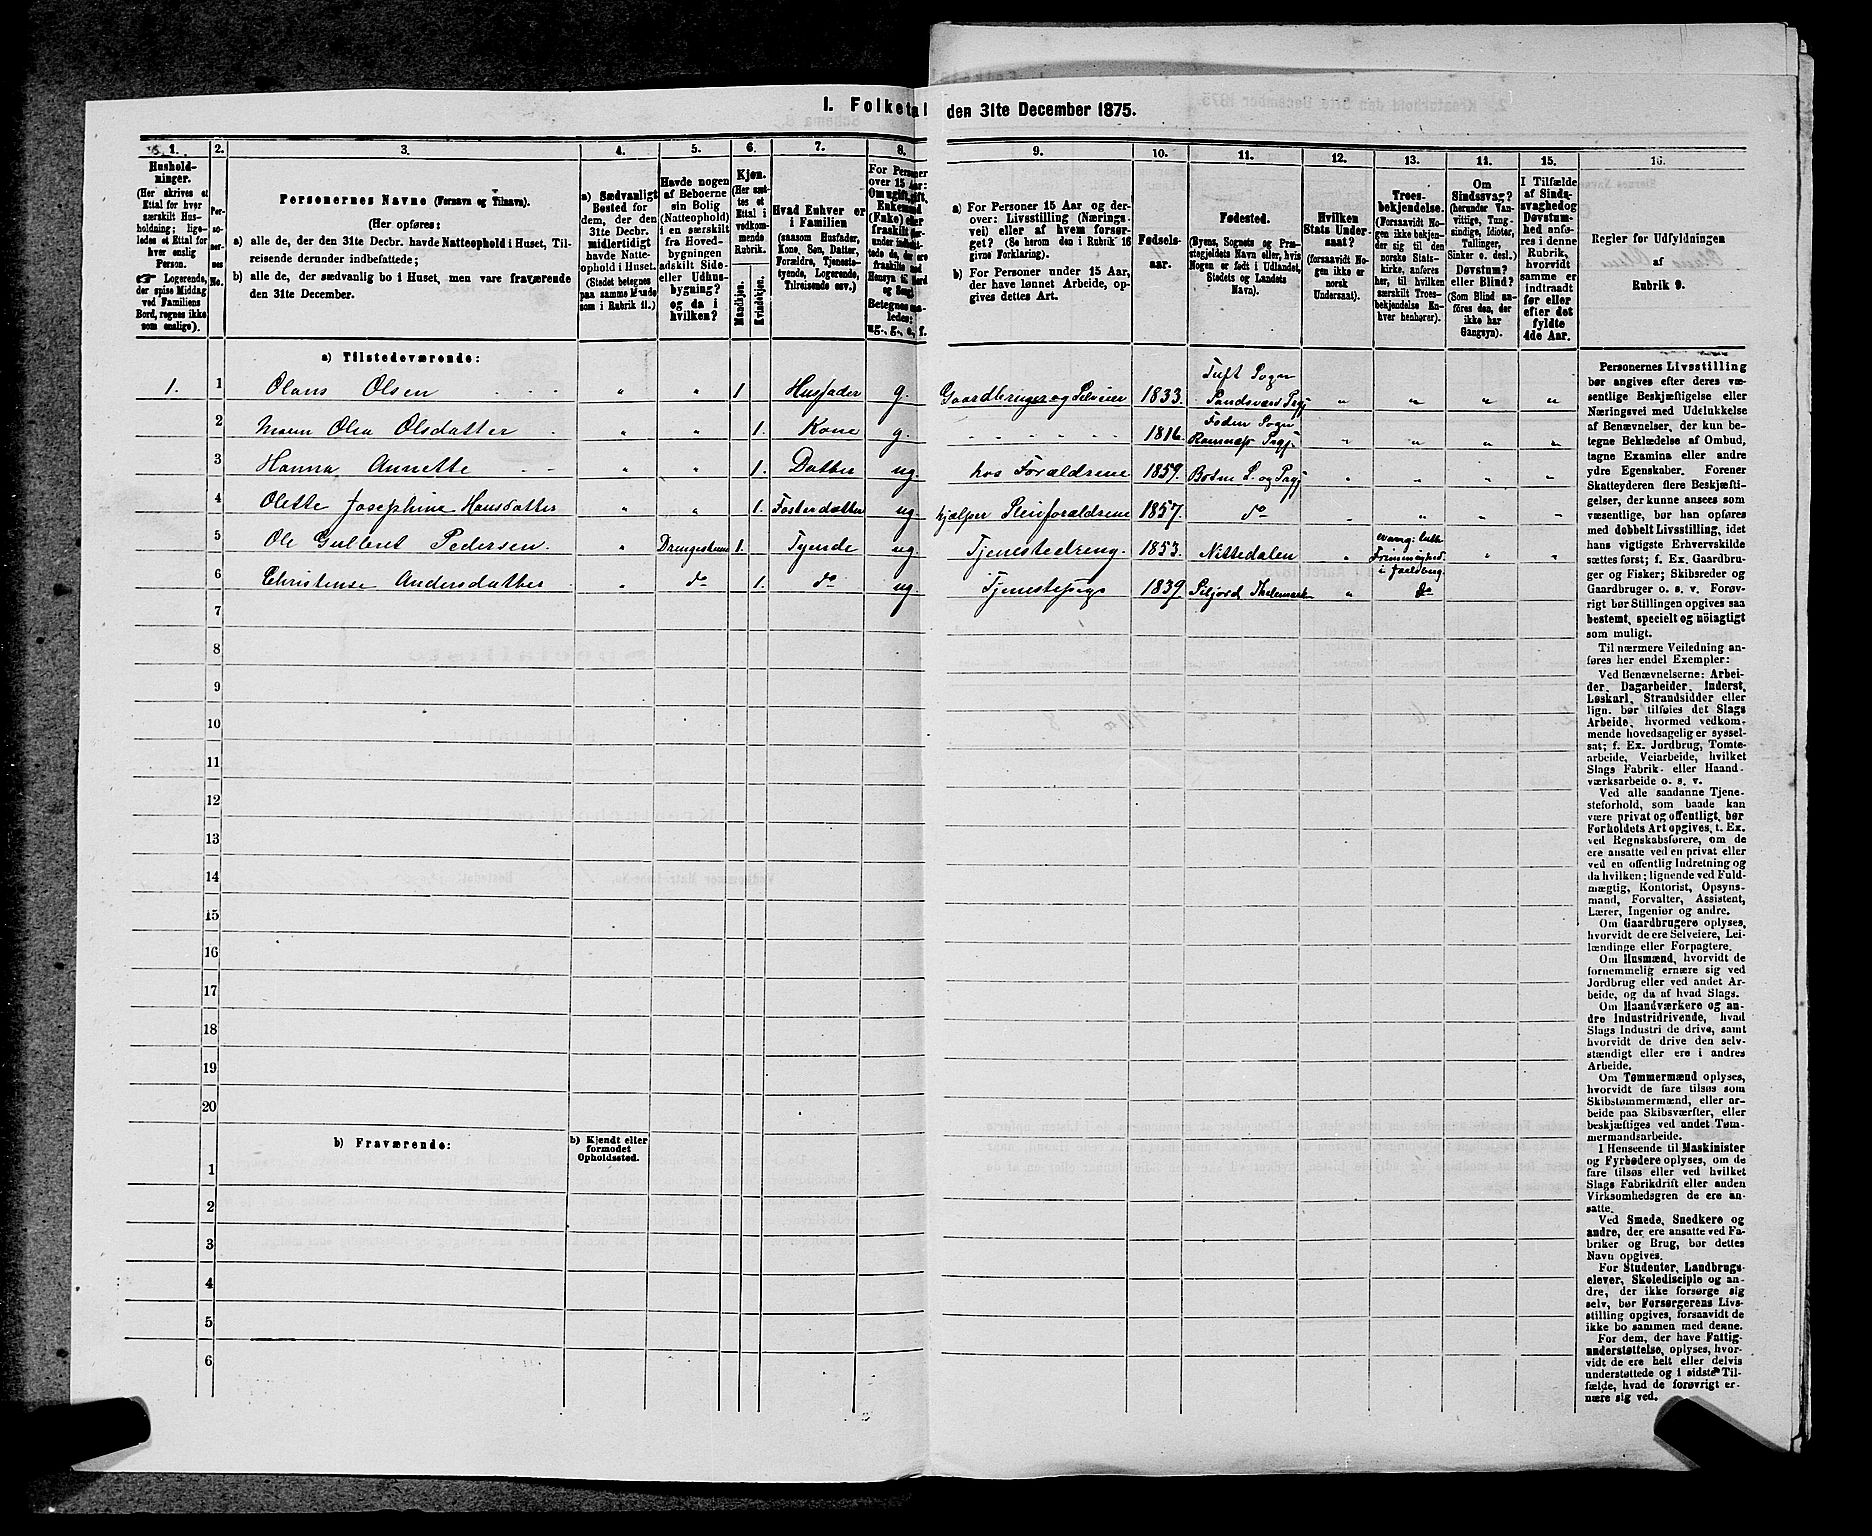 I. Folketal den 31te December 1875.
1. 2. 3. 4. 5. 6. 7. 8. 9. 10. 11. 12. 13. 14. 15. 16.
Hushold-
ninger.
(Her skrives et
Ettal for hver
særskilt Hus-
holdning; lige-
ledes et Ettal for
hver enslig
Person.
☞ Logerende,
der spise Middag
ved Familiens
Bord, regnes ikke
som enslige).
Per-
so-
ner-
nes
No.
Personernes Navne (Fornavn og Tilnavn).
(Her opføres:
a) alle de, der den 31te Decbr. havde Natteophold i Huset, Til-
reisende derunder indbefattede;
b) alle de, der sædvanlig bo i Huset, men vare fraværende
den 31te December.
a) Sædvanligt
Bosted for
dem, der den
31te Decbr.
midlertidigt
havde Natte-
ophold i Huset.
(Stedet betegnes
paa samme Maade
som i Rubrik 11.)
Havde nogen
af Beboerne
sin Bolig
(Natteophold)
i en særskilt
fra Hoved-
bygningen
adskilt Side-
eller Udhus-
bygning?
og da i
hvilken?
Kjøn.
(Her sæt-
tes et
Ettal i
vedkom-
mende
Rubrik.
Mandkjøn.
Kvindekjøn.
Hvad Enhver er
i Familien
(saasom Husfader,
Kone, Søn, Datter,
Forældre, Tjeneste-
tyende, Logerende,
Tilreisende osv.)
For Personer
over 15 Aar:
Om ugift, gift,
Enkemand
(Enke) eller
fraskilt
Betegnes saa-
ledes:
ug., g., e., f.
a) For Personer 15 Aar og der-
over: Livsstilling (Nærings-
vei) eller af hvem forsør-
get? (Se herom den i Rubrik 16
givne Forklaring).
b) For Personer under 15 Aar,
der have lønnet Arbeide, op-
gives dettes Art.
Fødsels-
aar.
Fødested.
(Byens, Sognets og Præ-
stegjeldets Navn eller, hvis
Nogen er født i Udlandet,
Stedets og Landets
Navn).
Hvilken
Stats Under-
saat?
(forsaavidt No-
gen ikke er
norsk
Undersaat).
Troes-
bekjendelse.
(Forsaavidt No-
gen ikke bekjen-
der sig til den
norske Stats-
kirke, anføres
her, til hvilken
særskilt Troes-
bekjendelse En-
hver henhører).
Om
Sindssvag?
(herunder Van-
vittige, Tung-
sindige, Idioter,
Tullinger,
Sinker o. desl.)
Døvstum?
eller Blind?
(Som Blind an-
føres den, der
ikke har
Gangsyn).
I Tilfælde
af Sinds-
svaghed og
Døvstum-
hed anfø-
res i denne
Rubrik,
hvorvidt
samme er
indtraadt
før eller
efter det
fyldte
4de Aar.
Regler for Udfyldningen
af
Rubrik 9.
a) Tilstedeværende:
1. 1 Olaus Olsen " " 1 Husfader g. Gaardbruger og Selveier 1833. Tuft Sogn Sandsværd Prgj " " " "
2 Maren Olea Olsdatter " " 1. Kone g. " " " " 1816. Foden Sogn Ramnæs Prgj. " " " "
3 Hanna Annette " " 1. Datter ug. hos Forældrene 1859. Botne S. og Prgj " " " "
4 Olette Josephine Hansdatter " " 1 Fosterdatter ug. hjælper Pleieforældrene 1857. do " " " "
5 Ole Gulbret Pedersen. " Drengestuen 1. Tyende ug. Tjenestedreng. 1853. Nittedalen " evang: luth Frimenighed i Jarlsberg " "
6 Christense Andersdatter " do 1. do ug. Tjenestepige 1839. Siljord Thelemark " do
7
8
9
10
11
12
13
14
15
16
17
18
19
20
b) Fraværende:
b) Kjendt eller
formodet
Opholdssted.
1
2
3
4
5
6
Personernes Livsstilling
bør angives efter deres væ-
sentlige Beskjæftigelse eller
Næringsvei med Udelukkelse
af Benævnelser, der kun be-
tegne Beklædelse af Ombud,
tagne Examina eller andre
ydre Egenskaber. Forener
Skatteyderen flere Beskjæfti-
gelser, der kunne ansees som
væsentlige, bør han opføres
med dobbelt Livsstilling, idet
hans vigtigste Erhvervskilde
sættes først; f. Ex. Gaardbru-
ger og Fisker; Skibsreder og
Gaardbruger o. s. v. Forøv-
rigt bør Stillingen opgives saa
bestemt, specielt og nöiagtigt
som muligt.
Til nærmere Veiledning an-
føres her endel Exempler:
Ved Benævnelserne: Arbei-
der, Dagarbeider, Inderst,
Løskarl, Strandsidder eller
lign. bør tilføies det Slags
Arbeide, hvormed vedkom-
mende hovedsagelig er syssel-
sat; f. Ex. Jordbrug, Tomte-
arbeide, Veiarbeide, hvilket
Slags Fabrik- eller Haand-
værksarbeide o. s. v.
Ved alle saadanne Tjene-
steforhold, som baade kan
være privat og offentligt, bør
Forholdets Art opgives, t. Ex.
ved Regnskabsførere, om de
ere ansatte ved en privat eller
ved en offentlig Indretning og
da hvilken; lignende ved Fuld-
mægtig, Kontorist, Opsyns-
mand, Forvalter, Assistent,
Lærer, Ingeniør og andre.
Om Gaardbrugere oplyses,
hvorvidt de ere Selveiere, Lei-
lændinge eller Forpagtere.
Om Husmænd, hvorvidt de
fornemmelig ernære sig ved
Jordbrug eller ved andet Ar-
beide, og da af hvad Slags.
Om Haandværkere og an-
dre Industridrivende, hvad
Slags Industri de drive, samt
hvorvidt de drive den selv-
stændigt eller ere i andres
Arbeide.
Om Tømmermænd oplyses,
hvorvidt de fare tilsøs som
Skibstømmermænd, eller ar-
beide paa Skibsværfter, eller
beskjæftiges ved andet Tøm-
mermandsarbeide.
I Henseende til Maskinister
og Fyrbødere oplyses, om de
fare tilsøs eller ved hvilket
Slags Fabrikdrift eller anden
Virksomhedsgren de ere an-
satte.
Ved Smede, Snedkere og
andre, der ere ansatte ved Fa-
briker og Brug, bør dettes
Navn opgives.
For Studenter, Landbrugs-
elever, Skoledisciple og an-
dre, der ikke forsørge sig
selv, bør Forsørgerens Livs-
stilling opgives, forsaavidt de
ikke bo sammen med denne.
For dem, der have Fattig-
understøttelse, oplyses, hvor-
vidt de ere helt eller delvis
understøttede og i sidste Til-
fælde, hvad de forøvrigt er-
nære sig ved.